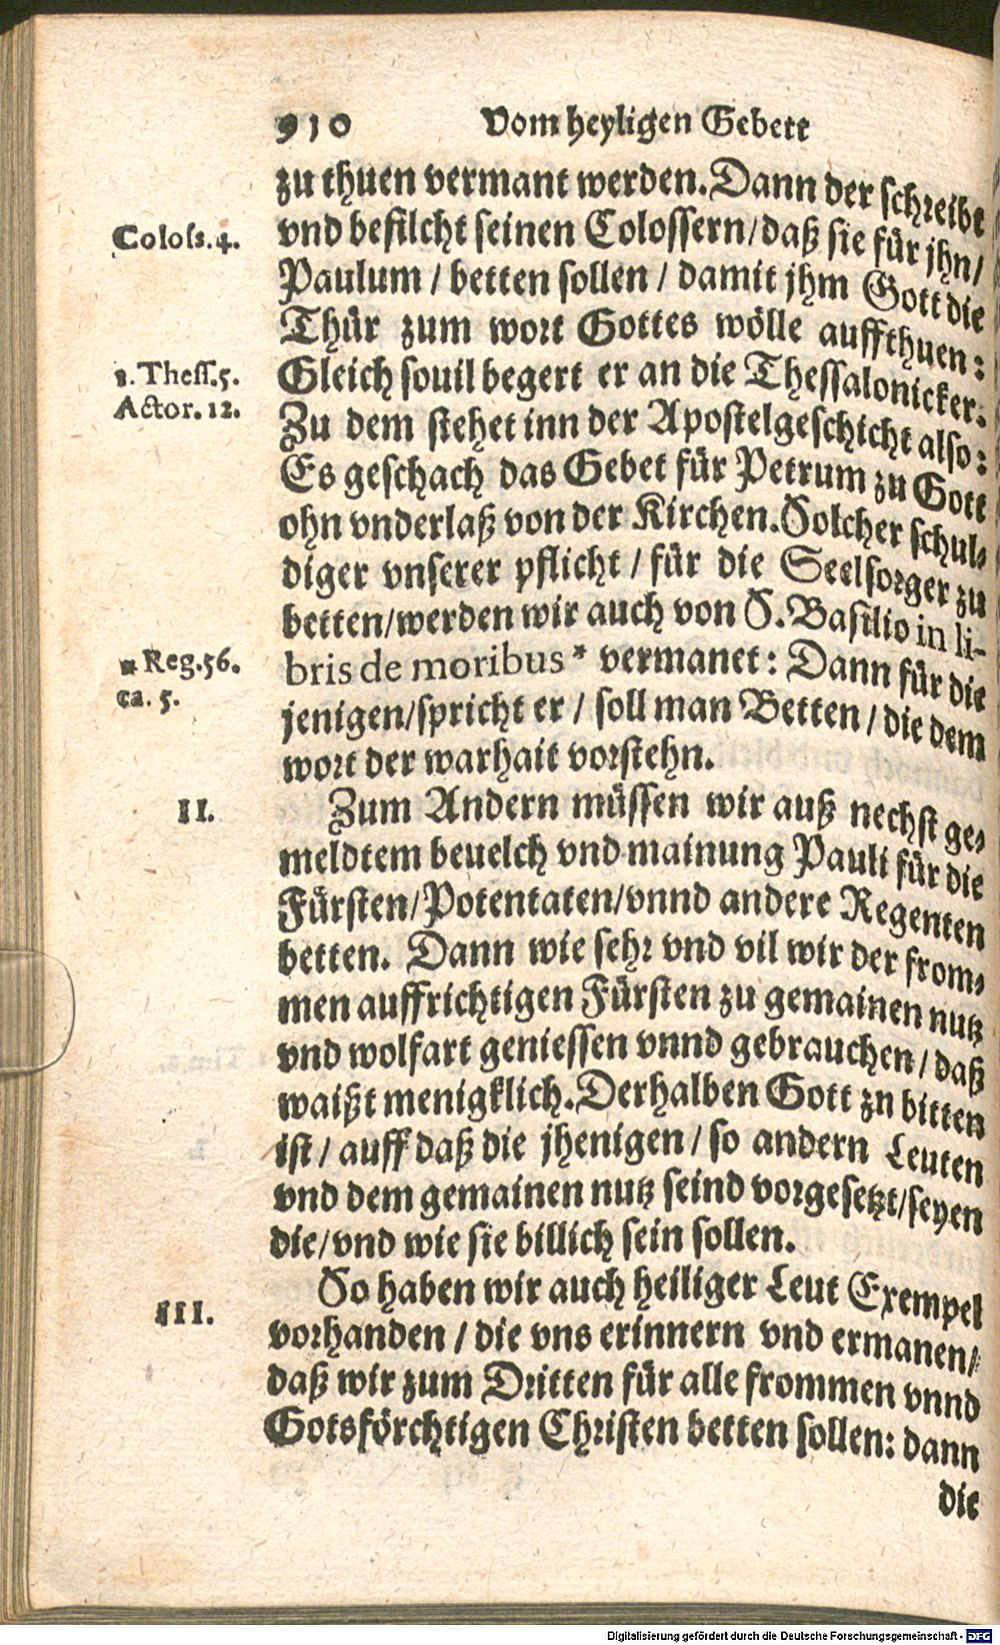 910 Vom heyligen Gebett
zu thuen vermant werden. Dann der schreibt
Coloss. 4. vnd befilcht seinen Colossern/daß sie für jhn/
Paulum / betten sollen / damit jhm Gott die
Thür zum wort Gottes wölle auffthuen:
1. Thess. 5. Gleich souil begert er an die Thessalonicker:
Actor. 12. Zu dem stehet inn der Apostelgeschicht also:
Es geschach das Gebet für Petrum zu Gott
ohn vnderlaß von der Kirchen. Solcher schul-
diger vnserer pflicht / für die Seelsorger zu
betten/werden wir auch von S. Basilio in li-
* Reg. 56. bris de moribus * vermanet: Dann für die
ca. 5. jenigen/spricht er / soll man Betten / die dem
wort der warhait vorstehn.
II. Zum Andern müssen wir auß nechst ge-
meldtem beuelch vnd mainung Pauli für die
Fürsten/Potentaten/vnnd andere Regenten
betten. Dann wie sehr vnd vil wir der from-
men auffrichtigen Fürsten zu gemainen nutz
vnd wolfart geniessen vnnd gebrauchen / daß
waißt menigklich. Derhalben Gott zn bitten
ist / auff daß die jhenigen / so andern Leuten
vnd dem gemainen nutz seind vorgesetzt/seyen
die/vnd wie sie billich sein sollen.
III. So haben wir auch heiliger Leut Exempel
vorhanden / die vns erinnern vnd ermanen/
daß wir zum Dritten für alle frommen vnnd
Gotsförchtigen Christen betten sollen: dann
die
Digitalisierung gefördert durch die Deutsche Forschungsgemeinschaft - DFG